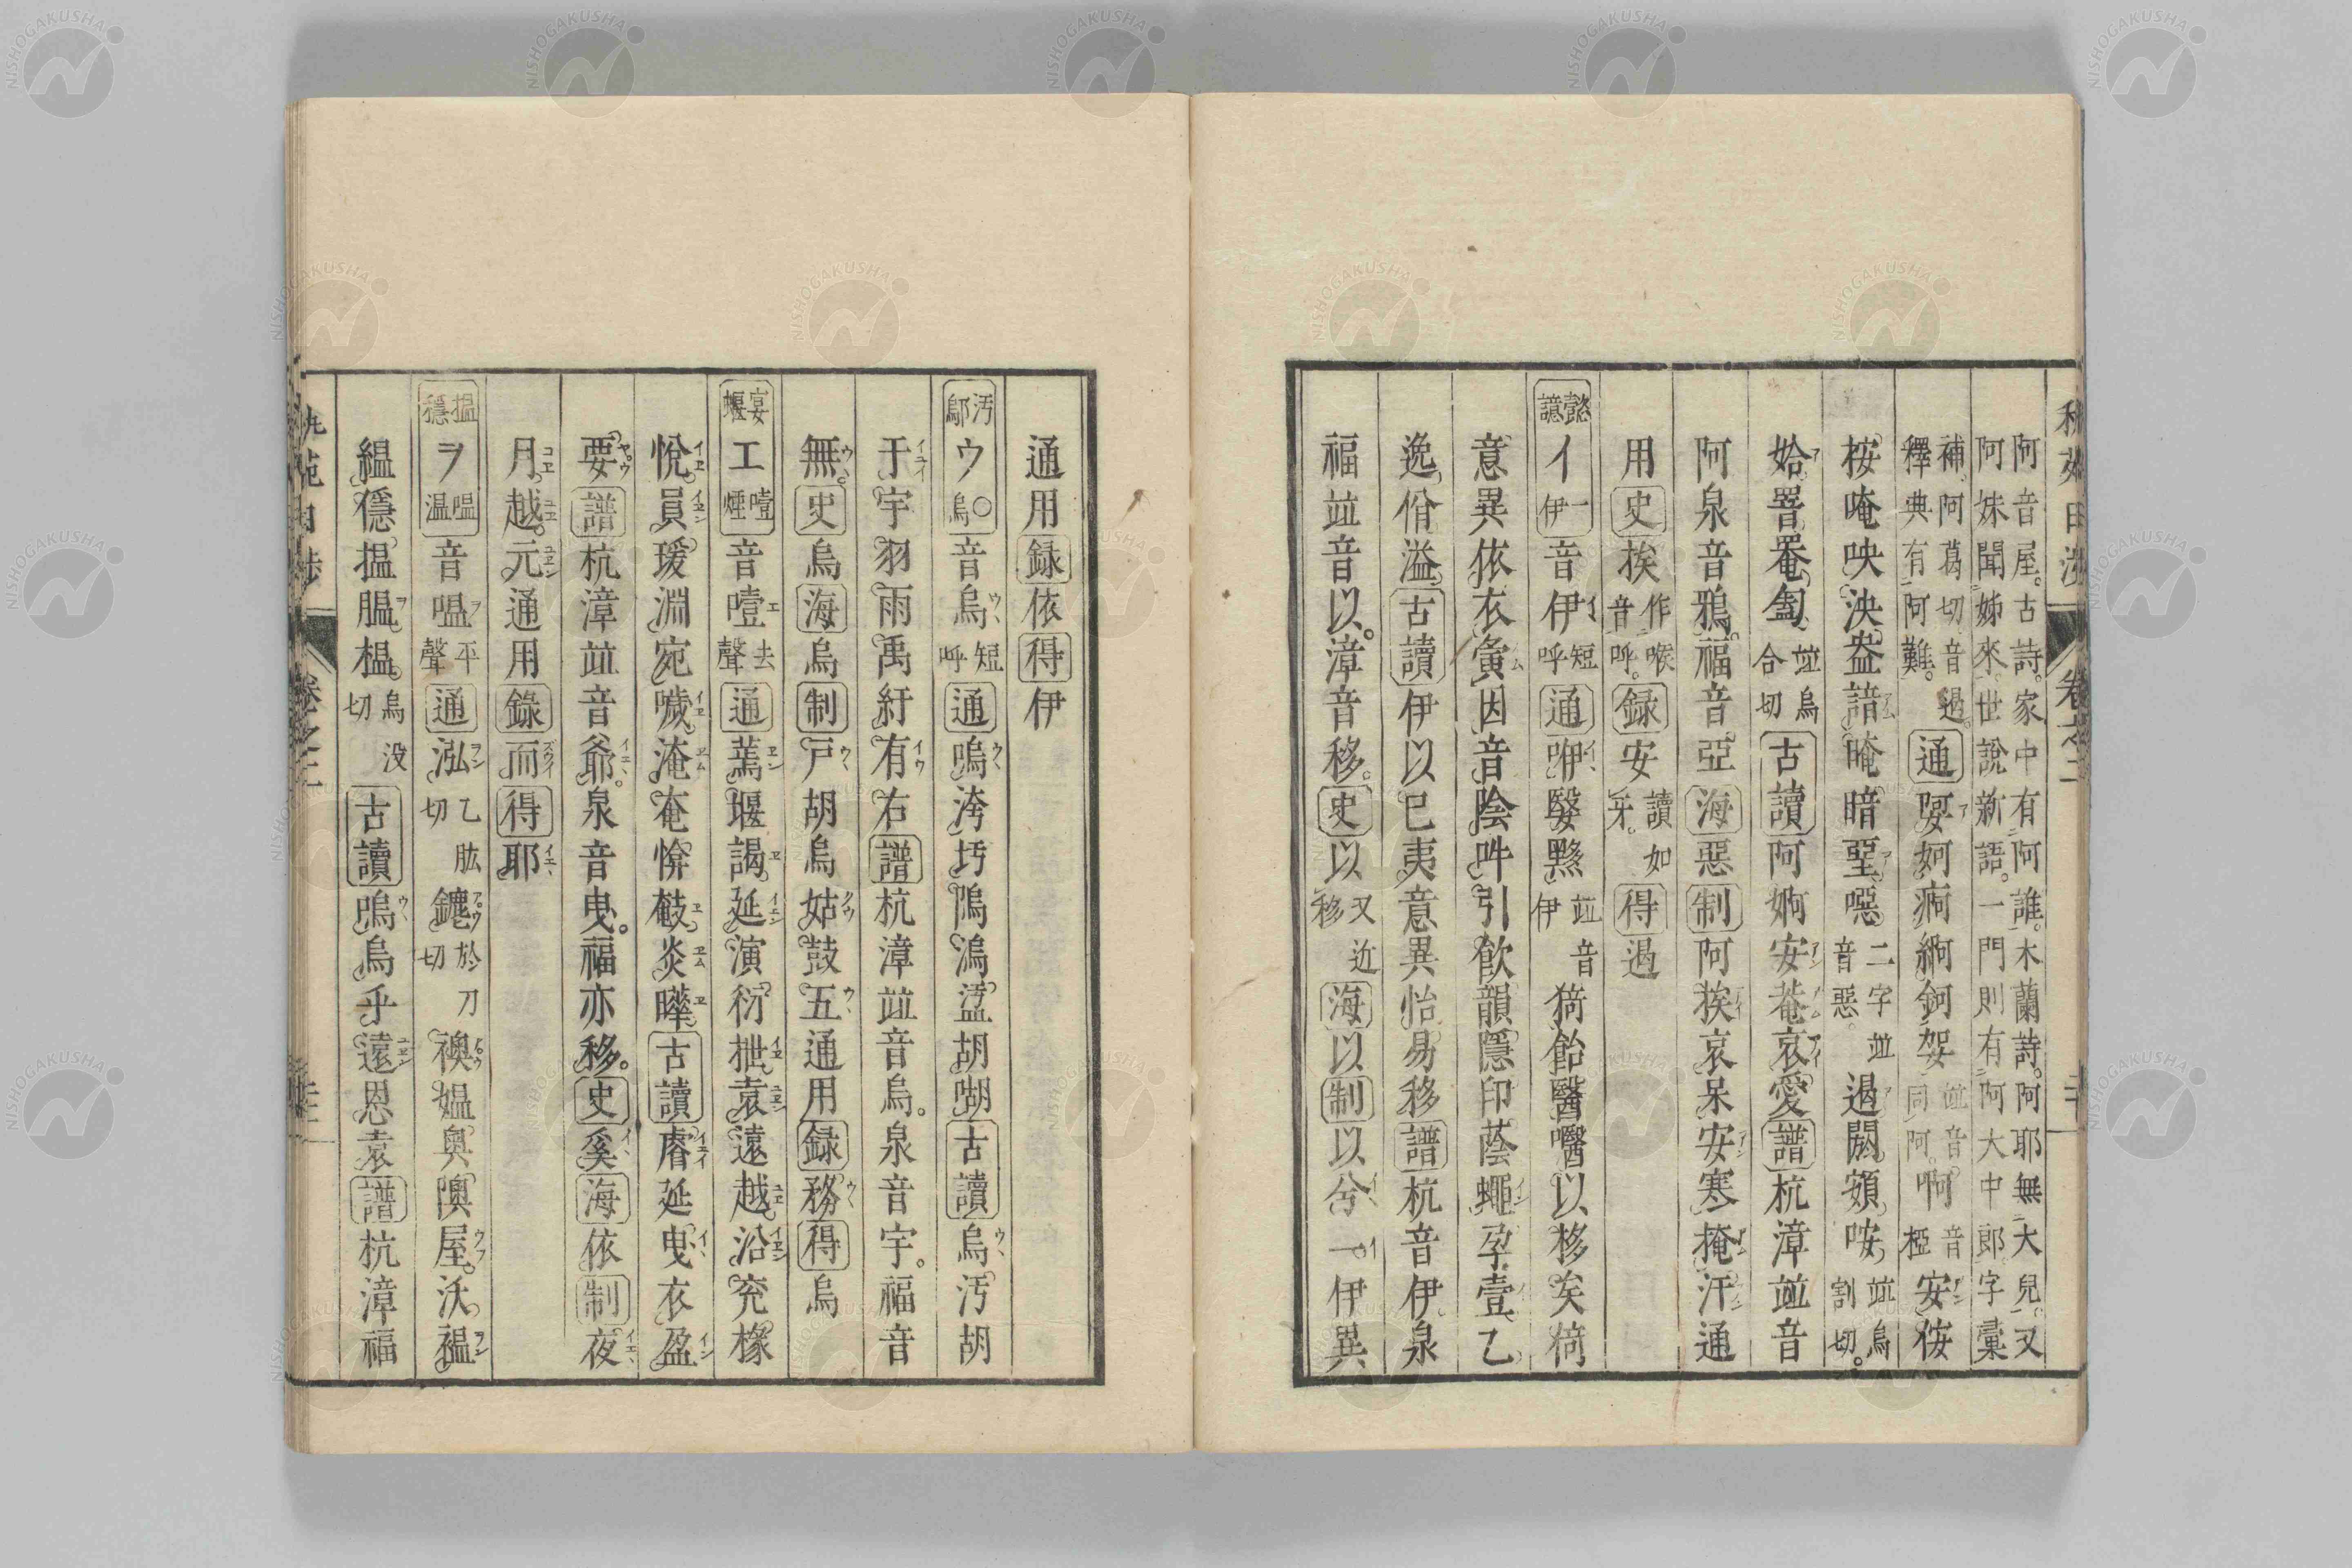 阿音屋。古詩。家中有阿誰。木蘭詩。阿耶無大兒。又
阿妹聞姊來。世說新語。一門則有阿大中郎。字彙
補。阿葛切音遏。
釋典有阿難。
通
娿妸痾綗鈳妿
並音
同阿。
啊
音
椏
安侒
桉唵咉泱盎諳晻暗堊噁
二字並
音惡。
遏閼頞咹
並烏
割切。
姶罯罨匎
並烏
合切
古讀阿婀安菴哀愛譜杭漳並音
阿泉音鴉。福音亞海惡制阿挨哀呆安寒掩汗通
用史挨
作喉
音呼。
録安
讀如
牙。
得遏
懿
譩
イ
一
伊
音伊
短
呼
通咿嫛黟
並音
伊
猗飴醫噫以移矣椅
意異依衣夤因音陰吽引飮韻隱印蔭蠅孕壹乙
逸佾溢古讀伊以已夷意異怡易移譜杭音伊泉
福並音以。漳音移。史以
又近
移
海以制以兮一伊異
通用録依得伊
汚
鄔
ウ
〇
烏
音烏
短
呼
通嗚洿圬隖溩盓胡瑚古讀烏汚胡
于宇羽雨禹紆有右譜杭漳並音烏。泉音宇。福音
無。史烏海烏制戸胡烏姑鼓五通用録務得烏
宴
堰
エ
噎
煙
音噎
去
聲
通蔫堰謁延演衍抴袁遠越沿兖櫞
悅員瑗淵宛噦淹奄愶敧炎曄古讀睿延曳衣盈
要譜杭漳並音爺。泉音曳。福亦移。史奚海依制夜
月越。元通用錄而得耶
揾
穩
ヲ
嗢
温
音嗢
平
聲
通泓
乙肱
切
鑣
於刀
切
襖媪奥隩屋沃褞
緼穩揾膃榲。
烏没
切
古讀嗚烏乎遠恩袁譜杭漳福
卷之二